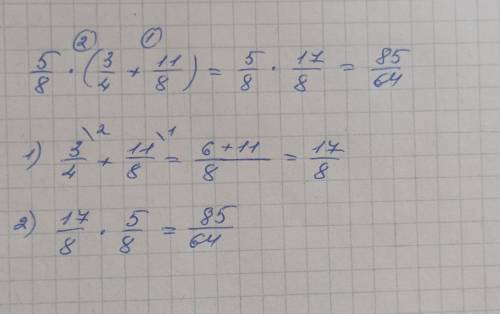 ② ①
5/8 · (3/4 + 11/8) = 5/8 · 17/8 = 85/64
1) 3/4 \2 + 11/8 \1 = 6+11/8 = 17/8
2) 17/8 · 5/8 = 85/64